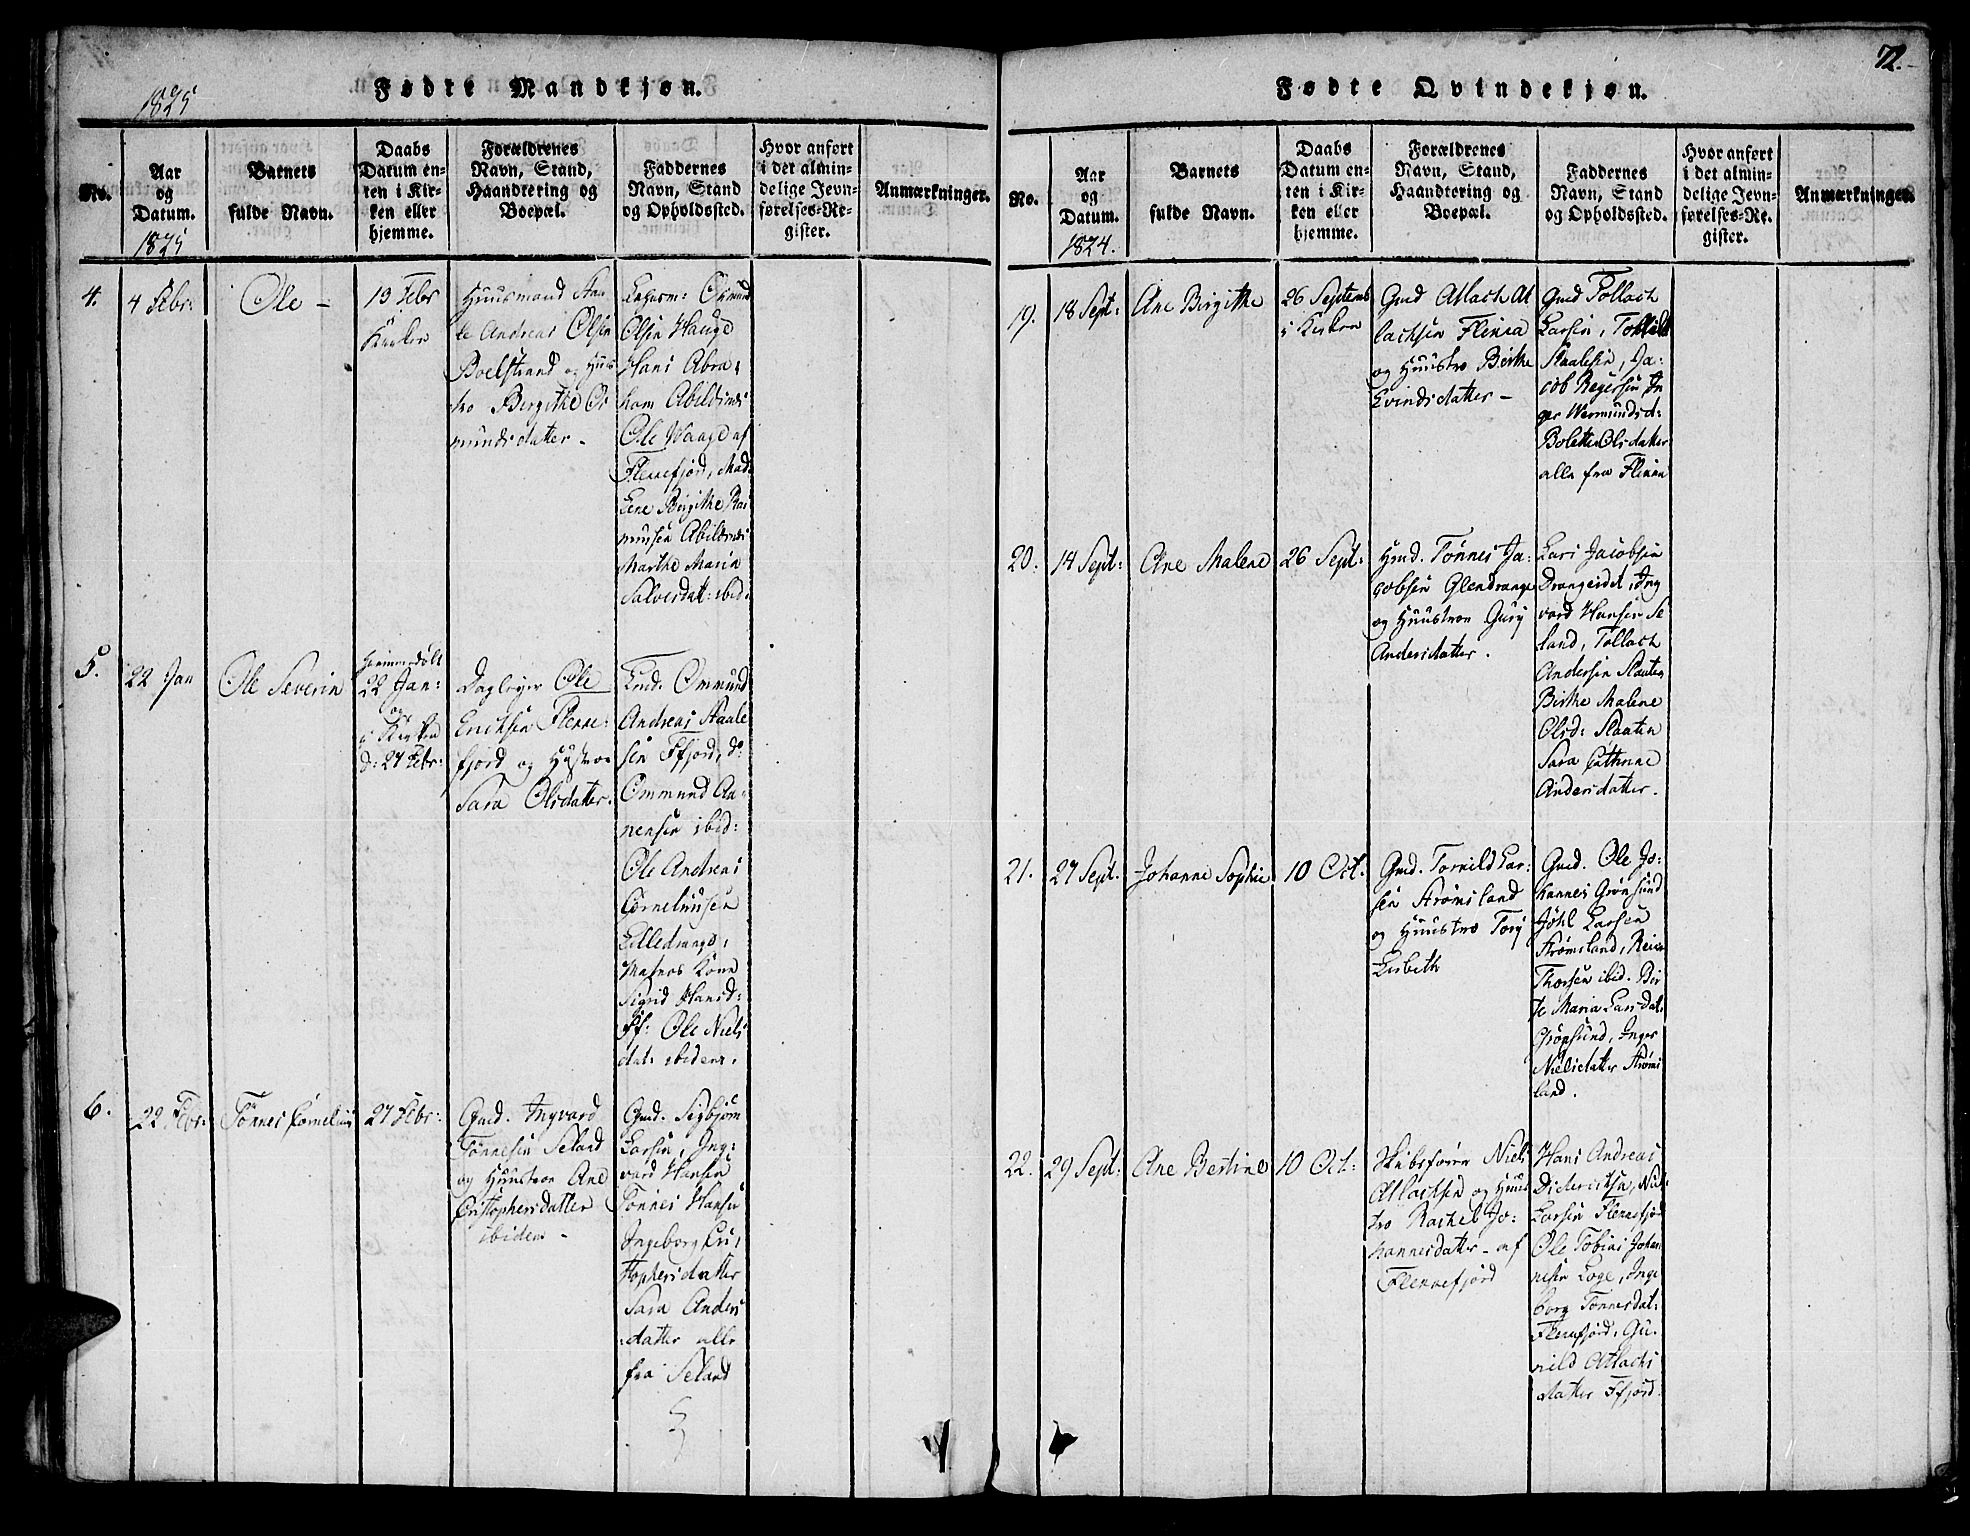 1825
Fødte Mandkjøn.
No.
Aar
og
Datum.
1825
Barnets
fulde Navn.
Daabs
Datum en-
ten i Kir-
ken eller
hjemme.
Forældrenes
Navn, Stand,
Haandtering og
Boepæl.
Faddernes
Navn, Stand
og Opholdssted.
Hvor anført
i det almin-
delige Jevn-
førelses-Re-
gister.
Anmærkninger.
4.
4 Febr:
Ole –
13 Febr
Huusmand
le Andreas Olsen
Boelstrand og Huus
tro Birgithe Os
mundsdatter –
Osmund
Olsen Hauge
Hans Abra:
ham Abildsnes
Ole Waage af
Flennefjord, Mad.
Lene Birgithe Ras
musen Abildsnes
Marthe Maria
Salvesdatt: ibid.
5.
22 Jan
Ole Severin
Hjemmedøbt
22 Jan:
og
i Kirken
d: 27 Febr:
Daglejer Ole
Erichsen Flenne:
fjord og Hustroe
Sara Olsdatter.
Ommund
Andreas Staale
sen Ffjord, do
Ommund Aa:
nensen ibid:
Ole Andreas
Cornelиusen
Lilledrange,
Sigrid Hansd:
Ff: Ole Niels
dat: ibidem.
6.
22 Febr:
Tønnes Cornelius
27 Febr:
Gmd. Ingvard
Tønnesen Seland
og Huustroe Ane
Cristophersdatter
ibidem –
Gmd. Sigbjørn
Larsen, Ing:
vard Hansen
Tønnes Hansen
Ingeborg Cri:
stophersdatter
Sara Anders
datter alle
fra Seland
72.
Fødte Qvindekjøn.
No.
Aar
og
Datum.
1824.
Barnets
fulde Navn.
Daabs
Datum en-
ten i Kir-
ken eller
hjemme.
Forældrenes
Navn, Stand,
Haandtering og
Boepæl.
Faddernes
Navn, Stand
og Opholdssted.
Hvor anført
i det almin-
delige Jevn-
førelses-Re-
gister.
Anmærkninger.
19.
18 Sept:
Ane Birgithe
26 Septemb
i Kirken
Gmd Atlach At
lachsen Flenea
og Huustro Birthe
Evindsdatter –
Gmd Tollach
Larsen,
Staalesen, Ja:
cob Regersen In
ger Wermundsd:
Bolette Olsdatter
alle fra Flenea
20.
14 Sept:
Ane Malene
26 Sept:
Hmd. Tønnes Ja:
cobsen Glendrange
og Huustroe Gurij
Andersdatter.
Lars Jacobsen
Drangeidet, Ing
vard Hansen Se
land, Tollach
Andersen Slaaten
Birthe Malene
Olsd: Slaaten
Sara Cathrine
Andersdatter.
21.
27 Sept.
Johanne Sophie
10 Oct.
Gmd. Tarald Lar:
sen Strømsland
og Huustroe Torij
Lisbeth
Gmd. Ole Jo:
hannes Grønsund
Larsen
Strømsland,
Thorsen ibid. Bir
te Maria Larsdat.
Grønsund, Inger
Nielsdatter Strøms
land.
22.
29 Sept:
Ane Bertine
10 Oct:
Skibsfører Niels
Atlachsen og Huus
tro Rachel Jo:
hannesdatter – af
Flennefjord
Hans Andreas
Didericksen, Niels
Larsen Flennefjor
Ole Tobias Johan
nesen Loge, Inge
borg Tønnesdat:
Flenefjord, Gu:
nild Atlachs
datter Ffjord.